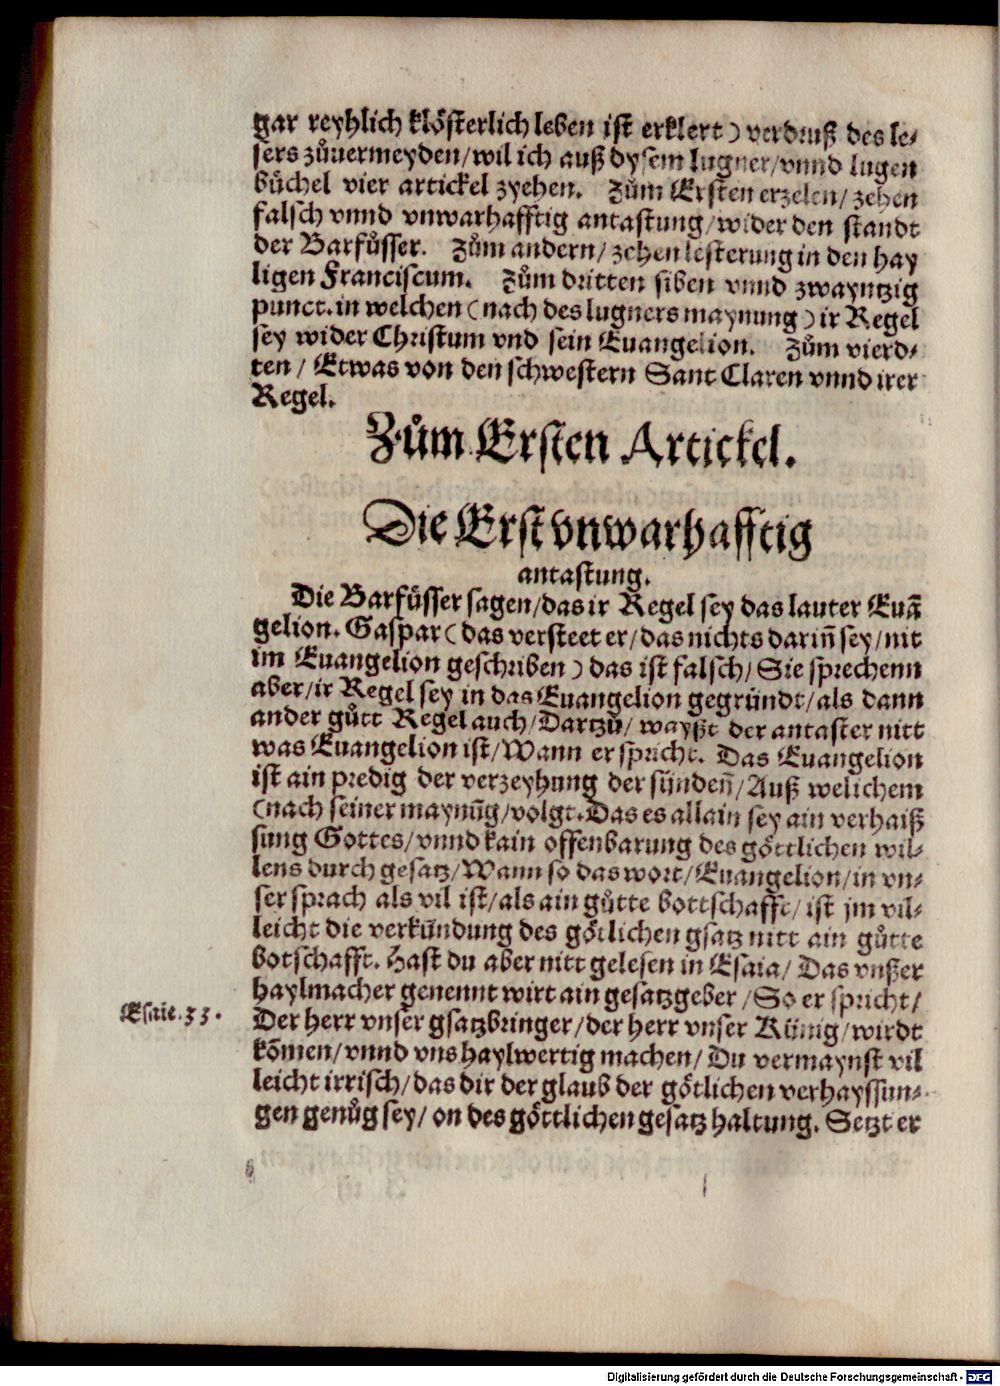 gar reyhlich klösterlich leben ist erklert) verdruß des le-
sers zůuermeyden/wil ich auß dysem lugner/vnnd lugen
bůchel vier artickel zyehen. Zům Ersten erzelen/zehen
falsch vnnd vnwarhafftig antastung/wider den standt
der Barfůsser. Zům andern/zehen lesterung in den hay
ligen Franciscum. Zům dritten siben vnnd zwayntzig
punct.in welchen (nach des lugners maynung) ir Regel
sey wider Christum vnd sein Euangelion. Zům vierd-
ten/Etwas von den schwestern Sant Claren vnnd irer
Regel.
Zům Ersten Artickel.
Die Erst vnwarhafftig
antastung.
Die Barfůsser sagen/das ir Regel sey das lauter Euā
gelion. Gaspar (das versteet er/das nichts dariñ sey/nit
im Euangelion geschriben) das ist falsch/Sie sprechenn
aber/ir Regel sey in das Euangelion gegründt/als dann
ander gůtt Regel auch/Dartzů/wayßt der antaster nitt
was Euangelion ist/Wann er spricht. Das Euangelion
ist ain predig der verzeyhung der sünden̄/Auß welichem
(nach seiner maynūg/volgt.Das es allain sey ain verhaiß
sung Gottes/vnnd kain offenbarung des göttlichen wil-
lens durch gesatz/Wann so das wort/Euangelion/in vn-
ser sprach als vil ist/als ain gůtte bottschafft/ist jm vil-
leicht die verkündung des götlichen gsatz nitt ain gůtte
botschafft. Hast du aber nitt gelesen in Esaia/Das vnßer
haylmacher genennt wirt ain gesatzgeber/So er spricht/
Esaie.33.
Der herr vnser gsatzbringer/der herr vnser Künig/wirdt
kōmen/vnnd vns haylwertig machen/Du vermaynst vil
leicht irrisch/das dir der glaub der götlichen verhayssun-
gen genůg sey/on des göttlichen gesatz haltung. Setzt er
Digitalisierung gefördert durch die Deutsche Forschungsgemeinschaft - DFG